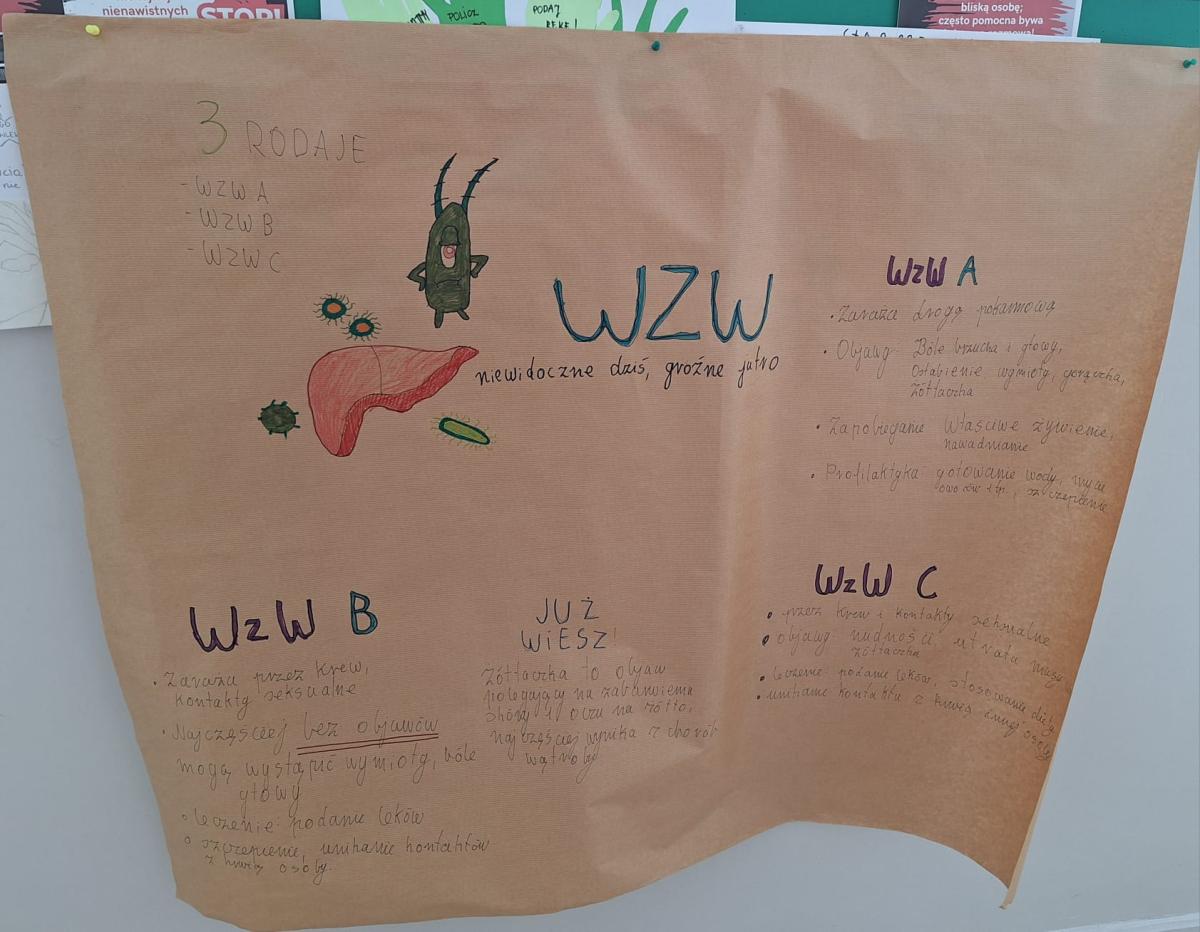 nienawistnych
STOP!
POLICZ
PODAJ
RĘKĘ!
bliską osobę;
często pomocna bywa
3 RODAJE
- WZW A
- WZW B
- WZW C
WZW
niewidoczne dziś, groźne jutro
WzW A
• Zaraża drogą pokarmową
• Objawy Bóle brzucha i głowy,
Osłabienie wymioty, gorączka,
Żółtaczka
• Zapobieganie Właściwe żywienie,
nawadnianie
• Profilaktyka gotowanie wody, mycie
owoców itp., szczepienie
WzW B
• Zaraża przez krew,
kontakty seksualne
• Najczęściej bez objawów
mogą wystąpić wymioty, bóle
głowy
• leczenie: podanie leków
• szczepienie, unikanie kontaktów
z krwią osoby.
JUŻ
WIESZ!
Żółtaczka to objaw
polegający na zabarwieniu
skóry i oczu na żółto,
najczęściej wynika z chorób
wątroby
WzW C
• przez krew i kontakty seksualne
• objawy: nudności, utrata masy
żółtaczka
• leczenie: podanie leków, stosowanie diety
• unikanie kontaktu z krwią innej osoby